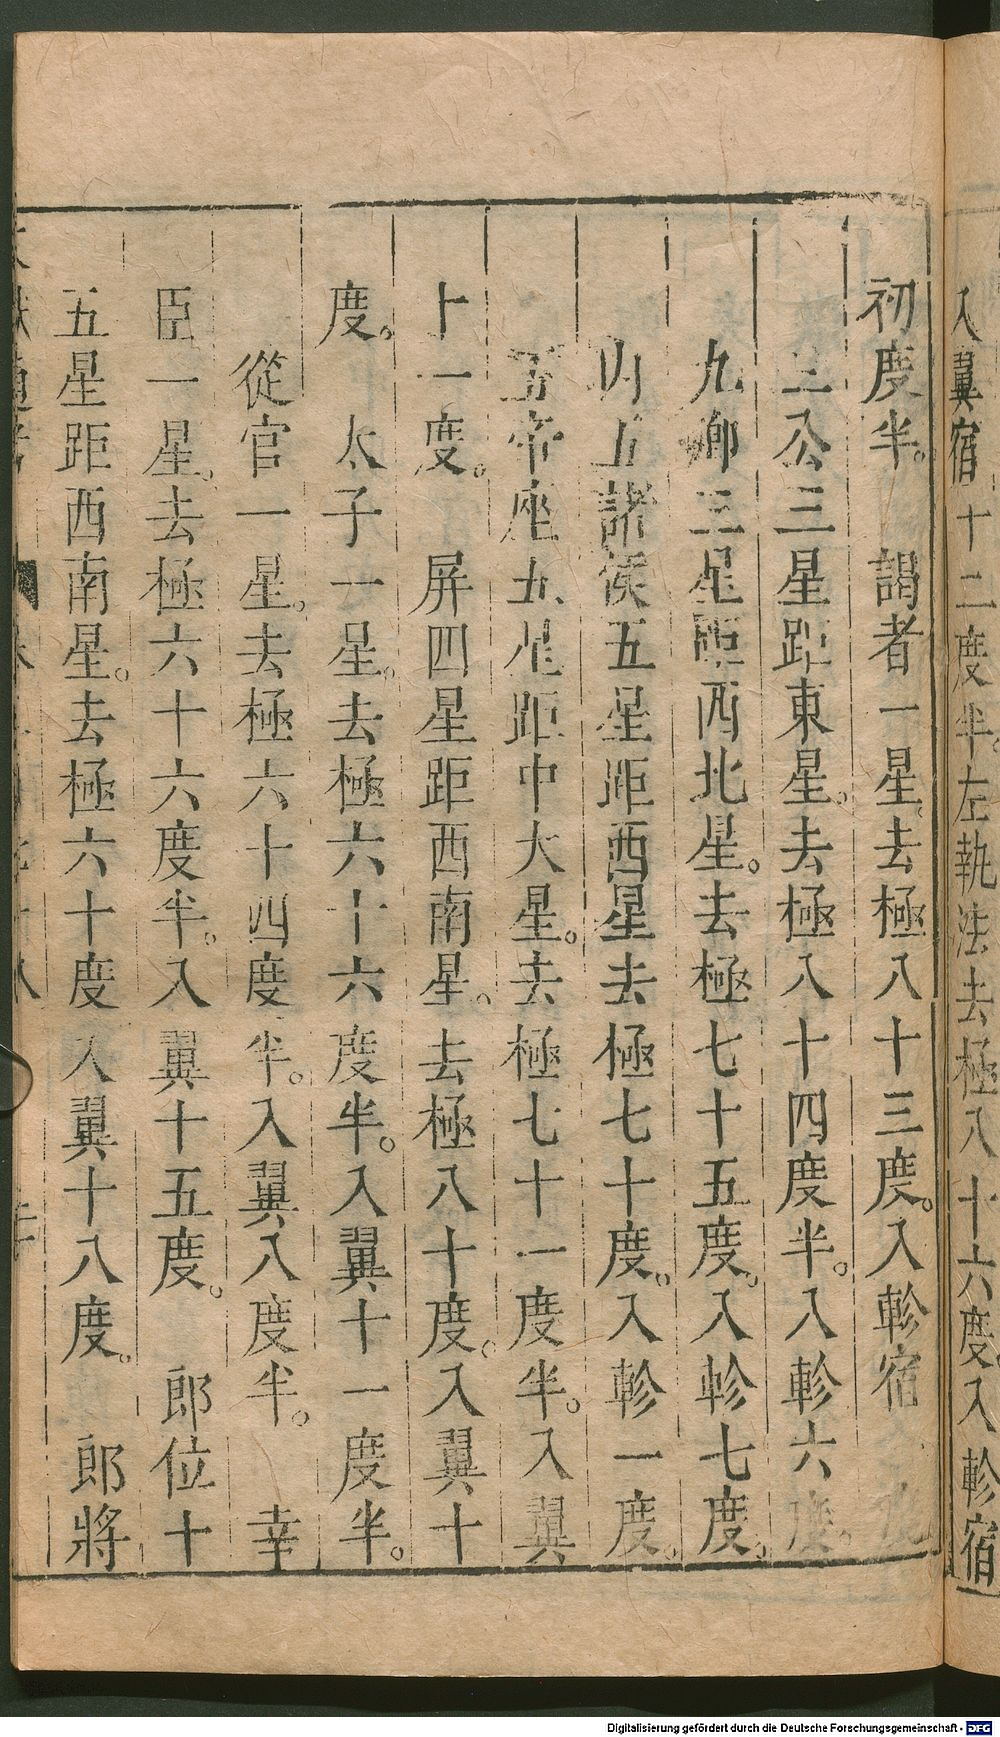 入翼宿十二度半。左執法去極八十六度。入軫宿
初度半。　謁者一星。去極八十三度。入軫宿
三公三星距東星。去極八十四度半。入軫六度。
九卿三星距西北星。去極七十五度。入軫七度。
內五諸侯五星距酉星去極七十度。入軫一度。
五帝座五星距中大星。去極七十一度半。入翼
十一度。　屏四星距西南星。去極八十度。入翼十
度。　太子一星。去極六十六度半。入翼十一度半。
從官一星。去極六十四度半。入翼八度半。　幸
臣一星。去極六十六度半。入翼十五度。　郎位十
五星距西南星。去極六十度入翼十八度。　郎將
Digitalisierung gefördert durch die Deutsche Forschungsgemeinschaft - DFG